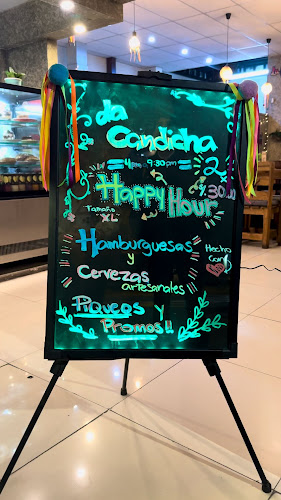 da
Candicha
4pm - 9:30pm
2 x 30.00
Happy Hour
Tamaño
XL
Hamburguesas
y
Cervezas
artesanales
Hecho
con
Piqueos y
Promos!!